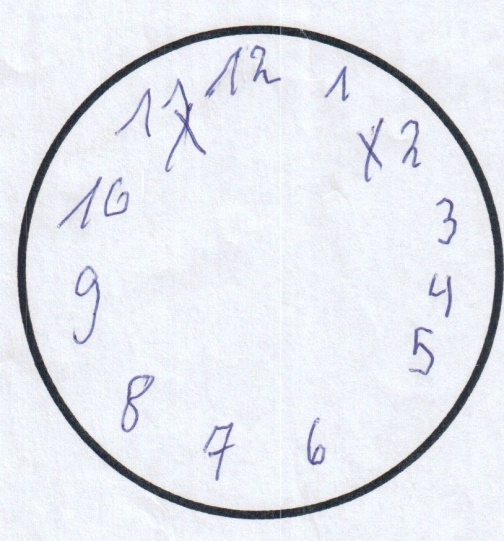 12
1
X 2
3
4
5
6
7
8
9
10
11
X